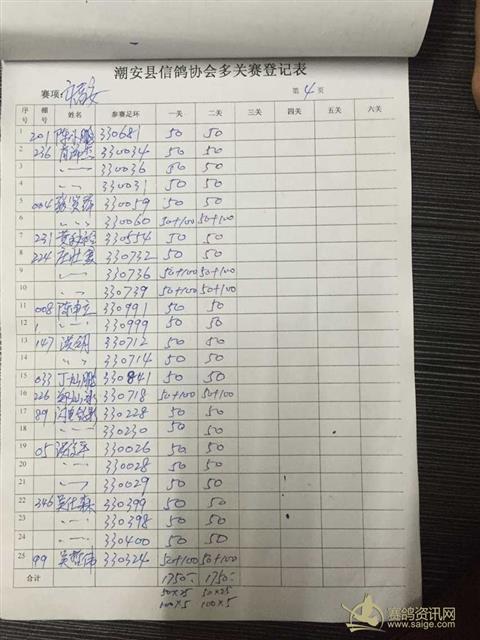 潮安县信鸽协会多关赛登记表
赛项: 第 4 页
序号 棚号 姓名 参赛足环 一关 二关 三关 四关 五关 六关
1 201 330681 50 50
2 236 330034 50 50
3 〃 330036 50 50
4 〃 330031 50 50
5 004 330059 50 50
6 〃 330060 50+100 50+100
7 231 330554 50 50
8 224 330732 50 50
9 〃 330736 50+100 50+100
10 〃 330739 50+100 50+100
11 008 330991 50 50
12 〃 330999 50 50
13 147 330712 50 50
14 〃 330714 50 50
15 033 330841 50 50
16 226 330718 50+100 50+100
17 89 330228 50 50
18 〃 330230 50 50
19 05 330026 50 50
20 〃 330028 50 50
21 〃 330029 50 50
22 346 330399 50 50
23 〃 330398 50 50
24 〃 330400 50 50
25 99 330324 50+100 50+100
合计 1750- 1750-
50×25 50×25
100×5 100×5
赛鸽资讯网
www.saige.com